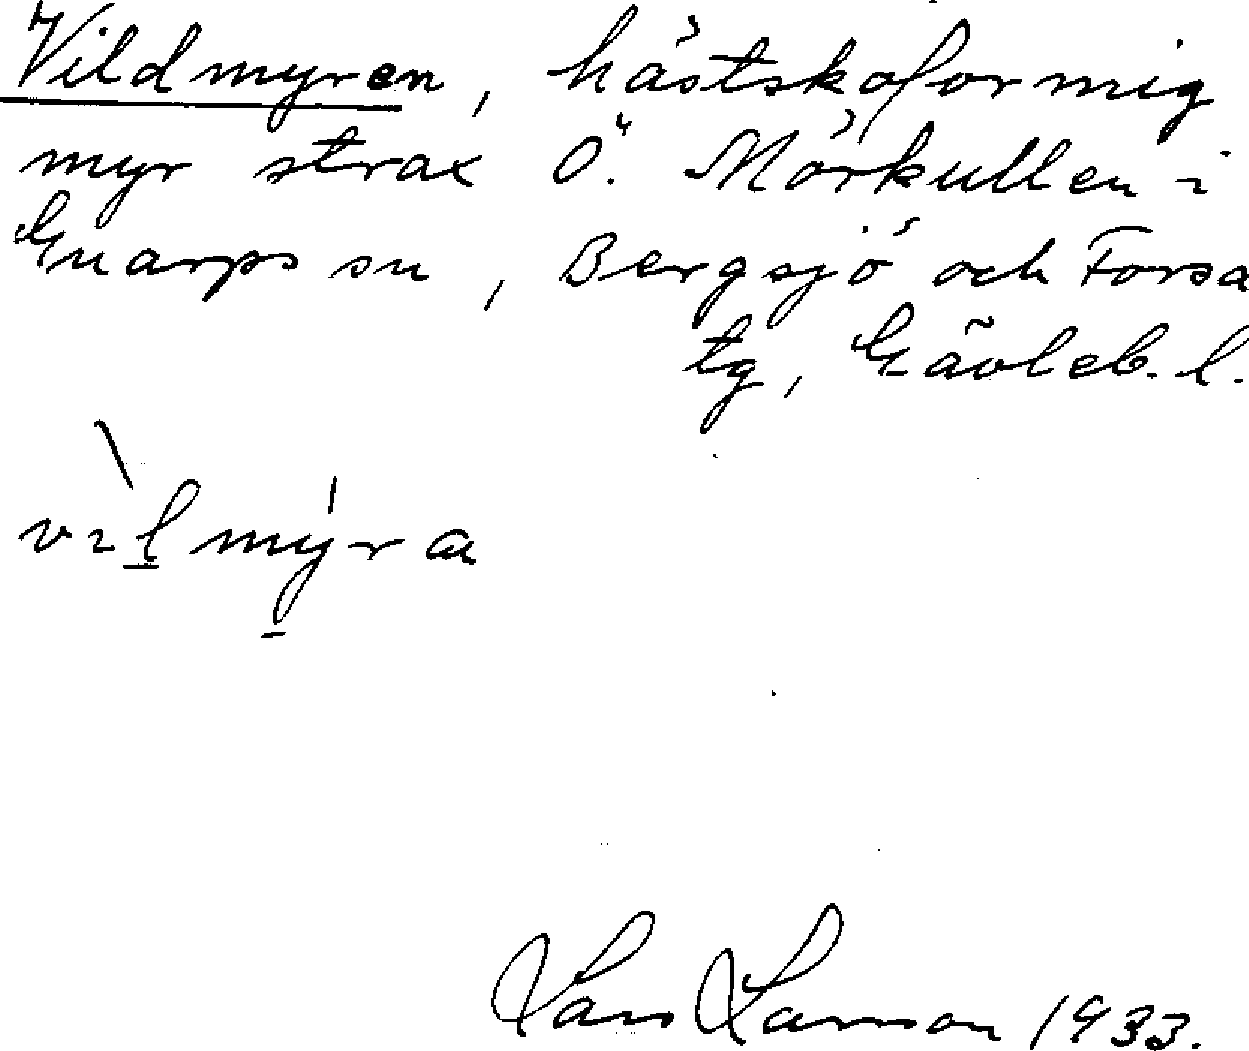 Vildmyren, hästskoformig
myr strax Ö. Mörkullen i
Gnarps sn, Bergsjö och Forsa
tg, Gävleb. l.
vìlmýra
Lars Larsson 1933.